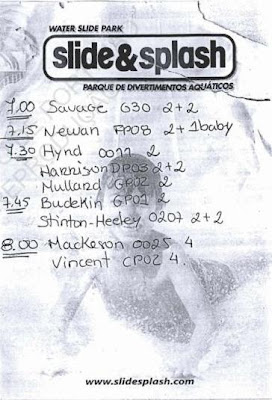 WATER SLIDE PARK
slide&splash
PARQUE DE DIVERTIMENTOS AQUÁTICOS
7.00 Savage G30 2+2
7.15 Newan FP08 2+1baby
7.30 Hynd 0011 2
Harrison DP03 2+2
Mullard GP02 2
7.45 Budekin GP01 2
Stinton-Heeley 0207 2+2
8.00 Mackeson 0025 4
Vincent CP02 4.
www.slidesplash.com